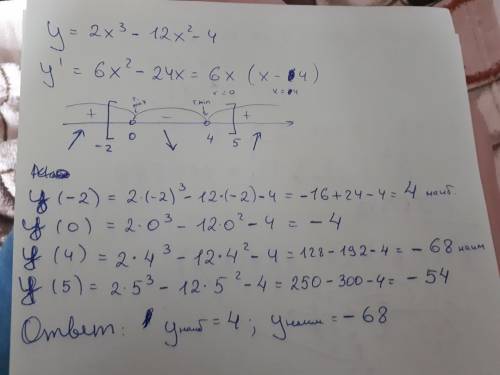 y = 2x³ - 12x² - 4
y' = 6x² - 24x = 6x (x - 4)
x=0 x=4
+ т max - т min +
-2 0 4 5
y(-2) = 2·(-2)³ - 12·(-2) - 4 = -16 + 24 - 4 = 4 наиб.
y(0) = 2·0³ - 12·0² - 4 = -4
y(4) = 2·4³ - 12·4² - 4 = 128 - 192 - 4 = -68 наим
y(5) = 2·5³ - 12·5² - 4 = 250 - 300 - 4 = -54
Ответ: y наиб = 4; y наим = -68